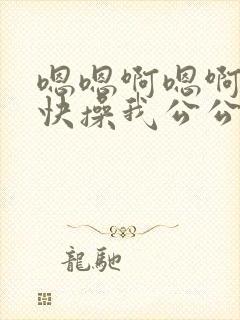 嗯嗯啊嗯啊
快操我公公
龍馳